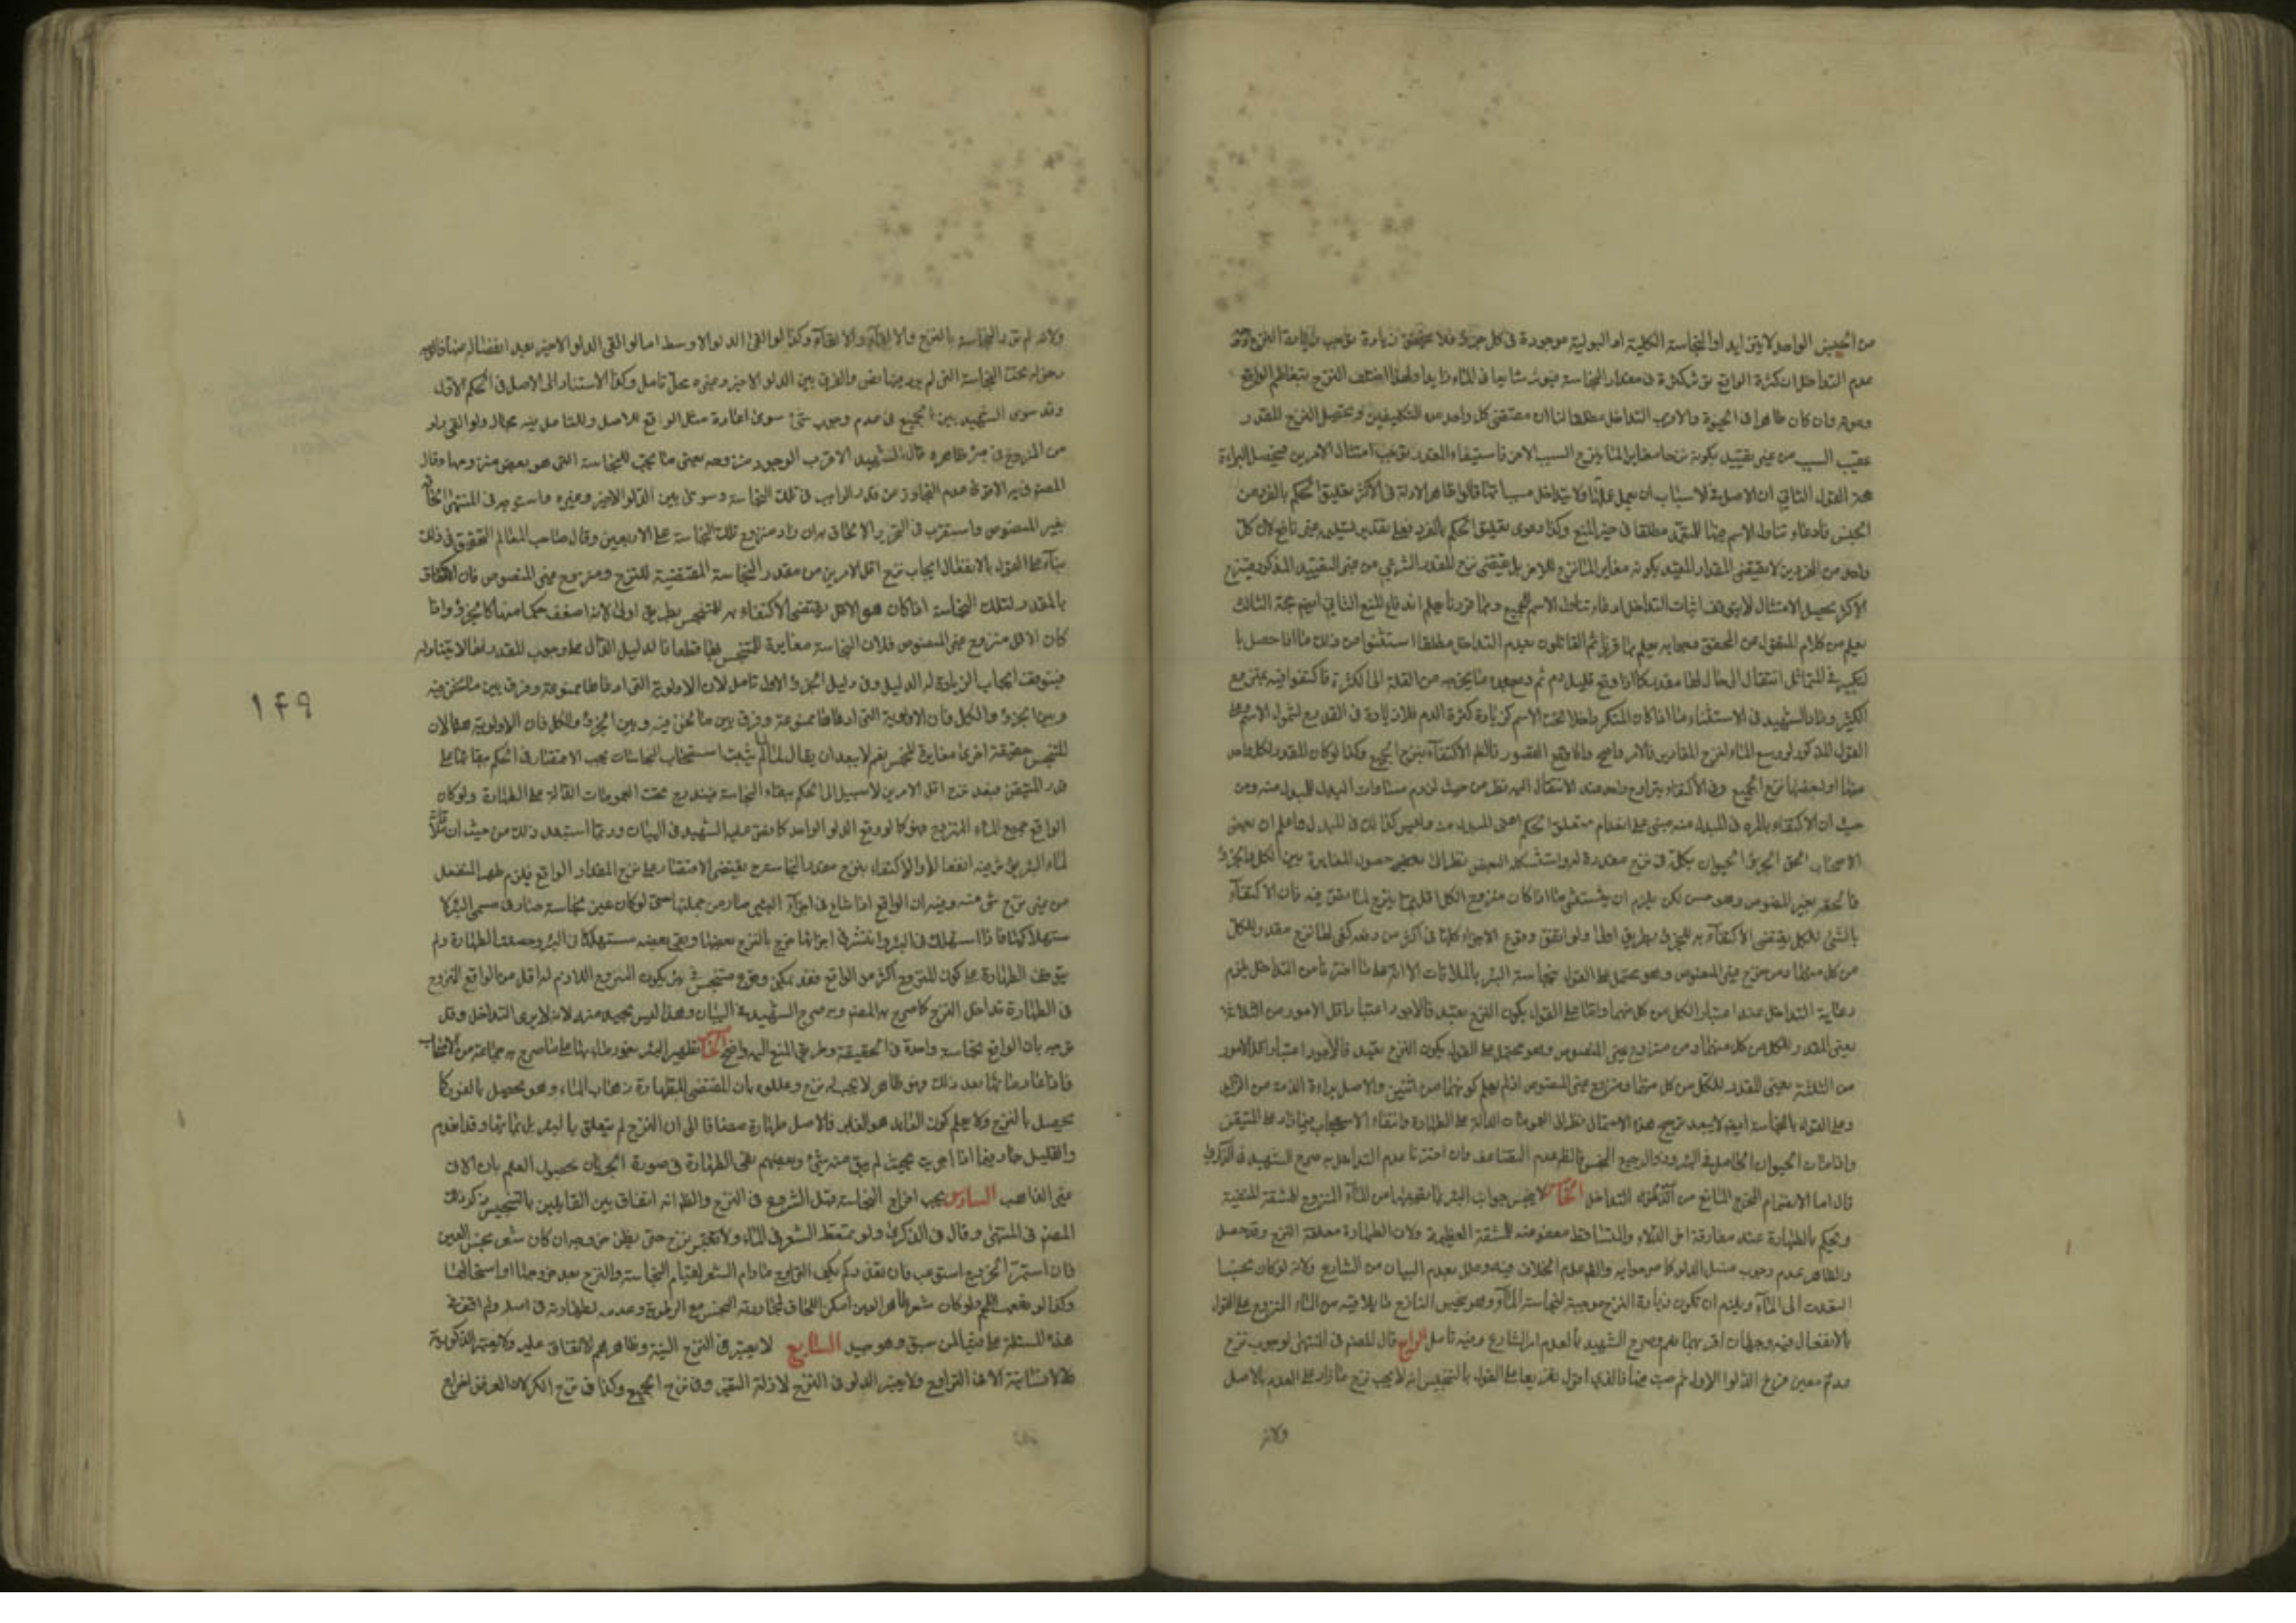 من الجنس الواحد لا يتزايد اذ النجاسة الكلبية او البولية موجودة في كل جزء فلا يتحقق زيادة توجب زيادة النزح
عدم التداخل ان كثرة الواقع تؤثر كثرة في مقدار النجاسة فيؤثر شياعا في الماء زايدا ولهذا اختلف النزح بتعاظم الواقع
وموته وان كان طاهرا في الحيوة والاقرب التداخل مطلقا لنا ان مقتضى كل واحد من التكليفين وتحصيل النزح للمقدر
عقيب السبب من غير تقييد بكونه نزحا مغايرا لما ينزح السبب الاخر فاستيفاء المقدر يوجب امتثال الامرين فيحصل البراءة
حجة القول الثاني ان الاصل في الاسباب ان يعمل عملها فلا يتداخل مسبباتها قالوا ظاهر الادلة في الاكثر تعليق الحكم بالفرد من
الجنس فادعاء تناول الاسم مطلقا في حيز المنع وكذا دعوى تعليق الحكم بالفرد فعلى تقدير تسليمه غير نافع لان كل
واحد من الفردين لا يقتضي المقدار المقيد بكونه مغاير لما نزح للاخر بل يقتضي نزح المقدر الشرعي من غير التقييد المذكور فبنزح
الاكثر يحصل الامتثال لا يتوقف اثبات التداخل ادعاء تناول الاسم للجميع وبما قررنا يعلم اندفاع المنع الثاني ايضا حجة الثالث
يعلم من كلام المنقول من المحقق وجوابه يعلم بما قررنا ثم القائلون بعدم التداخل مطلقا استثنوا من ذلك ما اذا حصل با
لتكثير في المتماثل انتقال الى حال لها مقدر كما اذا وقع قليل دم ثم وقع بعده ما يخرجه من القلة الى الكثرة فاكتفوا فيه بمنزوح
الكثير وزاد الشهيد في الاستثناء ما اذا كان المتكرر داخلا تحت الاسم كزيادة كثرة الدم فلا زيادة في القدر لشمول الاسم وعلى
القول المذكور لو وسع الماء لنزح المقادير فالامر واضح والا وقع القصور فالظاهر الاكتفاء بنزح الجميع وكذا لو كان المقدر لكل واحد
منها او لبعضها نزح الجميع وفي الاكتفاء بتراوح واحد عند الانتقال اليه نظر من حيث لزوم مساوات البدل للمبدل منه ومن
حيث ان الاكتفاء بالمرة في المبدل منه مبني على انعدام متعلق الحكم اعني المبدل منه وليس كذلك في المبدل واعلم ان بعض
الاصحاب الحق الجزء الحيوان بكله في نزح مقدره واستشكله البعض نظرا الى حصول المغايرة بين الكل والجزء
فالحقه بغير المنصوص وهو حسن لكن يلزم ان يستثنى ما اذا كان منزوح الكل اقل مما ينزح لما نص فيه فان الاكتفاء
بالشيء للكل يقتضي الاكتفاء به للجزء بطريق اولى ولو اتفق وقوع الاجزاء كلها في اكثر من دفعة كفى لها نزح مقدر الكل
من كل منهما ومن نزح غير المنصوص وهو محتمل على القول بنجاسة البئر بالملاقات الا انه على ما اخترنا من التداخل يلزم
رعاية التداخل عند اعتبار الكل من كل منهما واما على القول بكون النزح تعبد فالاجود اعتبار اقل الامور من الثلاثة
يعني المقدر للكل من كل منهما ومن منزوح غير المنصوص وهو محتمل على القول بكون النزح تعبد فالاجود اعتبار اقل الامور
من الثلثة يعني المقدر للكل من كل منهما ومنزوح غير المنصوص اذا لم يعلم كونهما من اثنين والاصل براءة الذمة من الزائد
وعلى القول بالنجاسة ايضا لا يبعد ترجيح هذا الاحتمال نظرا الى العمومات الدالة على الطهارة وانتفاء الاستصحاب فيما زاد على المتيقن
واذا مات الحيوان الحامل في البئر وذو الرجيع النجس فالظاهر عدم التضاعف وان اخترنا عدم التداخل به صرح الشهيد في الذكرى
قال اما لانضمام المخرج المانع من التداخل الخامس لا ينجس جوانب البئر بما يصيبها من الماء المنزوح للمشقة المنفية
ويحكم بالطهارة عند مفارقة اخر الدلاء والمتساقط معفو عنه للمشقة العظيمة ولان الطهارة معلقة النزح وقد حصل
والظاهر عدم وجوب غسل الدلو كما صرحوا به والظاهر عدم الخلاف فيه وعلل بعدم البيان من الشارع ولانه لو كان نجسا
لتعدت الى الماء ويلزم ان تكون زيادة النزح موجبة لنجاسة الماء وهو نجس النازح ما يلاقيه من الماء المنزوح على القول
بالانفعال فيه وجهان اقربهما نعم وصرح الشهيد بالعدم امر الشارع وفيه تامل الرابع قال المصنف في المنتهى لوجوب نزح
عدد معين فنزح الدلو الاول ثم صب فيها فالذي اقول تفريعا على القول بالتنجيس انه لا يجب نزح ما زاد على العدد بالاصل
ولانه
ولانه لم تزد النجاسة بالنزح والالقاء وكذا لو القى الدلو الاوسط اما لو القى الدلو الاخير بعد انفصاله عنها
دخوله تحت النجاسة التي لم يرد فيها نص والفرق بين الدلو الاخير وغيره محل تامل وكذا الاستناد الى الاصل في الحكم الاول
وقد سوى الشهيد بين الجميع في عدم وجوب شيء سوى اعادة مثل الواقع للاصل وللتامل فيه مجال ولو القى دلو
من المنزوح في بئر طاهرة قال الشهيد الاقرب الوجوب منزوحه يعني ما يجب للنجاسة التي هو بعض منزوحها وقال
المصنف فيه الاقوى عدم التجاوز عن قدر الواجب في تلك النجاسة وسوى بين الدلو الاخير وغيره واستوجه في المنتهى الحاقه
بغير المنصوص واستقرب في التحرير الالحاق به ان زاد منزوح تلك النجاسة على الاربعين وقال صاحب المعالم التحقيق في ذلك
بناء على القول بالانفعال ايجاب نزح اقل الامرين من مقدر النجاسة المقتضية للنزح ومنزوح غير المنصوص فان الاكتفاء
بالمقدر لتلك النجاسة اذا كان هو الاقل يقتضي الاكتفاء به للمتنجس بطريق اولى لانه اضعف حكما منها كالجزء واذا
كان الاقل منزوح غير المنصوص فلان النجاسة مغايرة للمتنجس بها قطعا فالدليل الدال على وجوب المقدر لها لا يتناوله
فيتوقف ايجاب الزيادة له الدليل وفي دليل الجزء الاول تامل لان الاولوية التي ادعاها ممنوعة وفرق بين ما نحن فيه
وبين الجزء والكل فان الاولوية التي ادعاها ممنوعة وفرق بين ما نحن فيه وبين الجزء والكل فان الاولوية هنا لان
للمتنجس حقيقة اخرى مغايرة للنجس نعم لا يبعد ان يقال لما لم يثبت استصحاب النجاسات يجب الاقتصار في الحكم ببقائها على
قدر المتيقن فبعد نزح اقل الامرين لا سبيل الى الحكم ببقاء النجاسة فيندرج تحت العمومات الدالة على الطهارة ولو كان
الواقع جميع الماء المنزوح فهو كما لو وقع الدلو الواحد كما نص عليه الشهيد في البيان وربما استبعد ذلك من حيث ان ملاقاة
لماء البئر يؤثر فيه انفعالا والاكتفاء بنزح مقدر النجاسة يقتضي الاقتصار على نزح المقدار الواقع فيلزم طهر المنفعل
من غير نزح شيء منه وفيه ان الواقع اذا شاع في اجزاء البئر صار من جملتها حتى لو كان عين نجاسة صار في مسمى البئر كا
ستهلاكها فاذا استهلك في البئر وانتشر في اجزائها خرج بالنزح بعضها وبقي بعضه مستهلكا في البئر وحصلت الطهارة ولم
يتوقف الطهارة على كون المنزوح اكثر من الواقع فقد يمكن وقوع متنجس في بئر يكون المنزوح اللازم له اقل من الواقع المنزوح
في الطهارة تداخل النزح كما صرح به المصنف وبه صرح الشهيد في البيان وهذا ليس بجيد منه لانه لا يرى التداخل وقد
يوجه بان الواقع نجاسة واحدة في الحقيقة وطريق المنع اليه واضح الخامس تطهير البئر بغور ماءها على ما صرح به جماعة من الاصحاب
فاذا غار ماؤها بعد ذلك وهو ظاهر لا يجب له نزح وعللوه بان المقتضي للطهارة ذهاب الماء وهو يحصل بالغور كما
يحصل بالنزح ولا يعلم كون العايد هو الغاير فالاصل طهارة مضافا الى ان النزح لم يتعلق بالبئر بل بمائها وقد انعدم
والقليل حار فيما اذا اجريت بحيث لم يبق منه شيء وبعضهم نفى الطهارة في صورة الجريان بحصول العلم بان الآتي
غير الذاهب السادس يجب اخراج النجاسة قبل الشروع في النزح والظاهر انه اتفاق بين القايلين بالتنجيس ذكر ذلك
المصنف في المنتهى وقال في الذكرى ولو تمعط الشعر في الماء ولا يعتبر نزح حتى يظن خروجه ان كان شعر نجس العين
فان استمر الخروج استوعب فان تعذر لم يكف التراوح ما دام الشعر لقيام النجاسة والنزح بعد خروجها او استحالتها
وكذا لو تفتت اللحم ولو كان شعر طاهر العين امكن اللحاق لمجاورته النجس مع الرطوبة وعدمه لطهارته في اصله ولم اقف في
هذه المسئلة على فتيا لمن سبق وهو جيد السابع لا يعتبر في النزح النية وظاهرهم الاتفاق عليه ولا يعتبر الذكورية
ولا الانسانية الا في التراوح ولا يعتبر الدلو في النزح لازالة التغير وفي نزح الجميع وكذا في نزح الكر لان الغرض اخراج
١٤٩